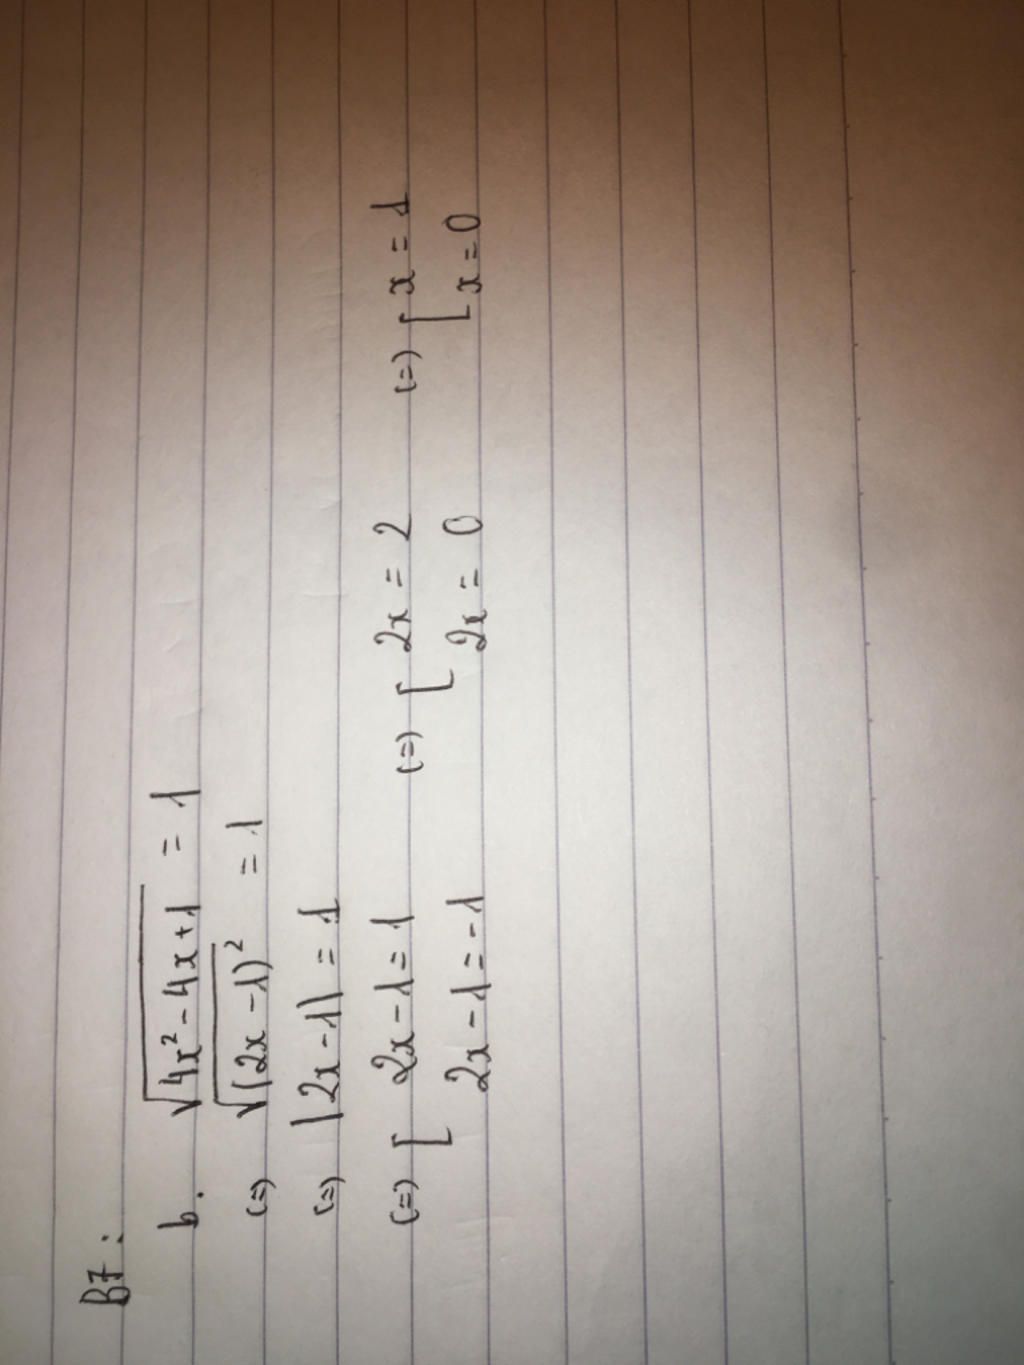 B7:
b. √4x² - 4x + 1 = 1
(=) √(2x - 1)² = 1
(=) |2x - 1| = 1
(=) [ 2x - 1 = 1 (=) [ 2x = 2 (=) [ x = 1
2x - 1 = -1 2x = 0 x = 0